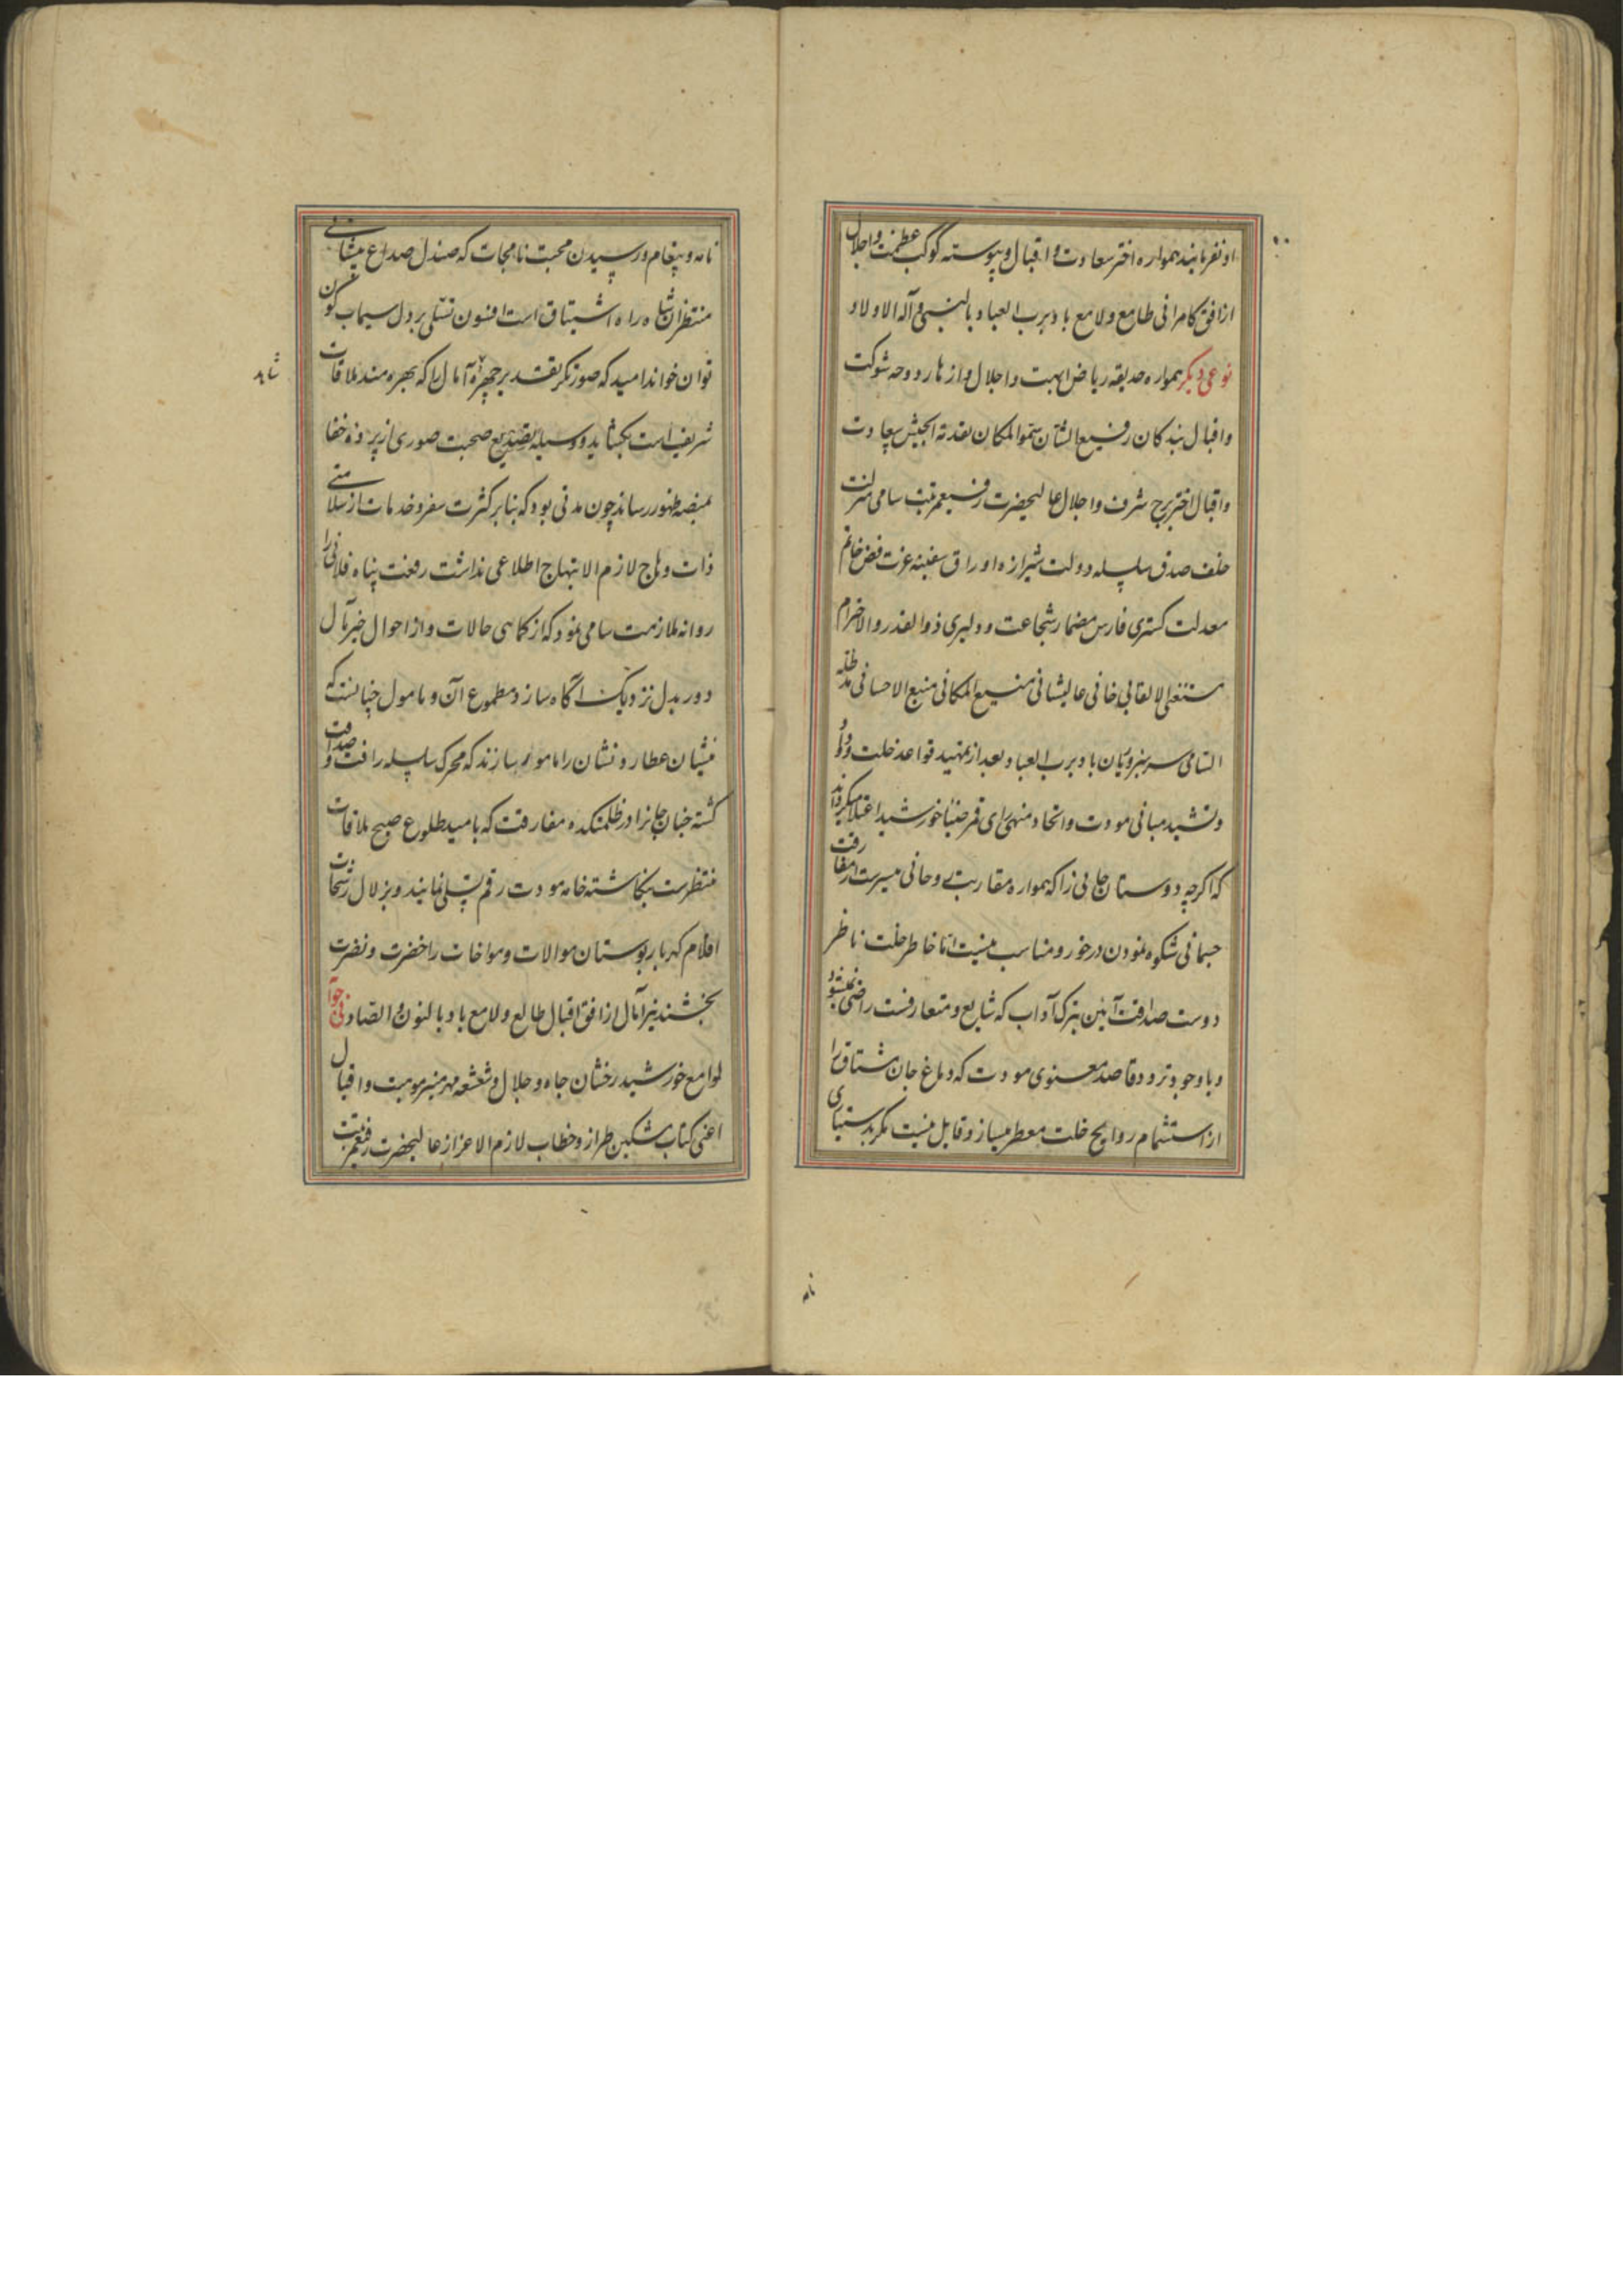 او نفرمایند همواره اختر سعادت و اقبال و پیوسته کوکب عظمت و اجلال
از افق کامرانی طامع و لامع باد برب العباد بالنبی و آله الاولاد
نوعی دیگر همواره حدیقه ریاض ابهت و اجلال و ازهار دوحه شوکت
و اقبال بندگان رفیع الشان سمو المکان نقدة الجیش سعادت
و اقبال اختر برج شرف و اجلال عالیحضرت رفیعمرتبت سامی منزلت
خلف صدق سلسله دولت شیرازه اوراق سفینه عزت فص خاتم
معدلت کستری فارس مضمار شجاعت و دلیری ذوالقدر والاحترام
مستغنی الالقابی خانی عالیشانی منیع المکانی منبع الاحسانی مد ظله
السامی سرسبز و ریان باد برب العباد بعد از تمهید قواعد خلت و وداد
و تشیید مبانی مودت و اتحاد منهی رای قمر ضیا خورشید اعتلا میکرداند
که اکرچه دوستان جانی را که همواره مقاربت روحانی میسرست از مفارقت
جسمانی شکوه نمودن درخور و مناسب نیست اما خاطر خلت ناظر
دوست صداقت آیین بترک آداب که شایع و متعارفست راضی نمیشود
و با وجود تردد قاصد معنوی مودت که دماغ جان مشتاق را
از استشمام روایح خلت معطر میسازد قابل نیست مکر بدستیاری
نامه و پیغام و رسیدن محبت نامجات که صندل صداع پیشانی
منتظران شاه راه اشتیاق است افسون تسلی بر دل سیماب کون
توان خواند امید که صورتکر تقدیر چهره آمال را که بهره مند ملاقات
شریف است بکشاید و وسیله صحبت صوری از پرده خفا
بمنصه ظهور رساند چون مدتی بود که بنابر کثرت سفر و خدمات از سلامتی
ذات وهاج لازم الابتهاج اطلاعی نداشت رفعت پناه فلانی را
روانه ملازمت سامی نمود که از کماهی حالات و از احوال خیر مآل
دور بدل نزدیک اگاه سازد مطموع آن و مامول چنانست که
منشیان عطارد نشان را مامور سازند که محرک سلسله رافت و صداقت
کشته جنان جانرا در ظلمتکده مفارقت که بامید طلوع صبح ملاقات
منتظرست بنکاشته خامه مودت رقم تسلی نمایند و بزلال رشحات
اقلام کهربار بوستان موالات و مواخات را خضرت و نضرت
بخشند نیر آمال از افق اقبال طالع و لامع باد بالنون و الصاد فی جوابه
لوامع خورشید رخشان جاه و جلال و شعشعه مهر منیر موهبت و اقبال
اعنی کتاب مشکین طراز و خطاب لازم الاعزاز عالیحضرت رفیعمرتبت